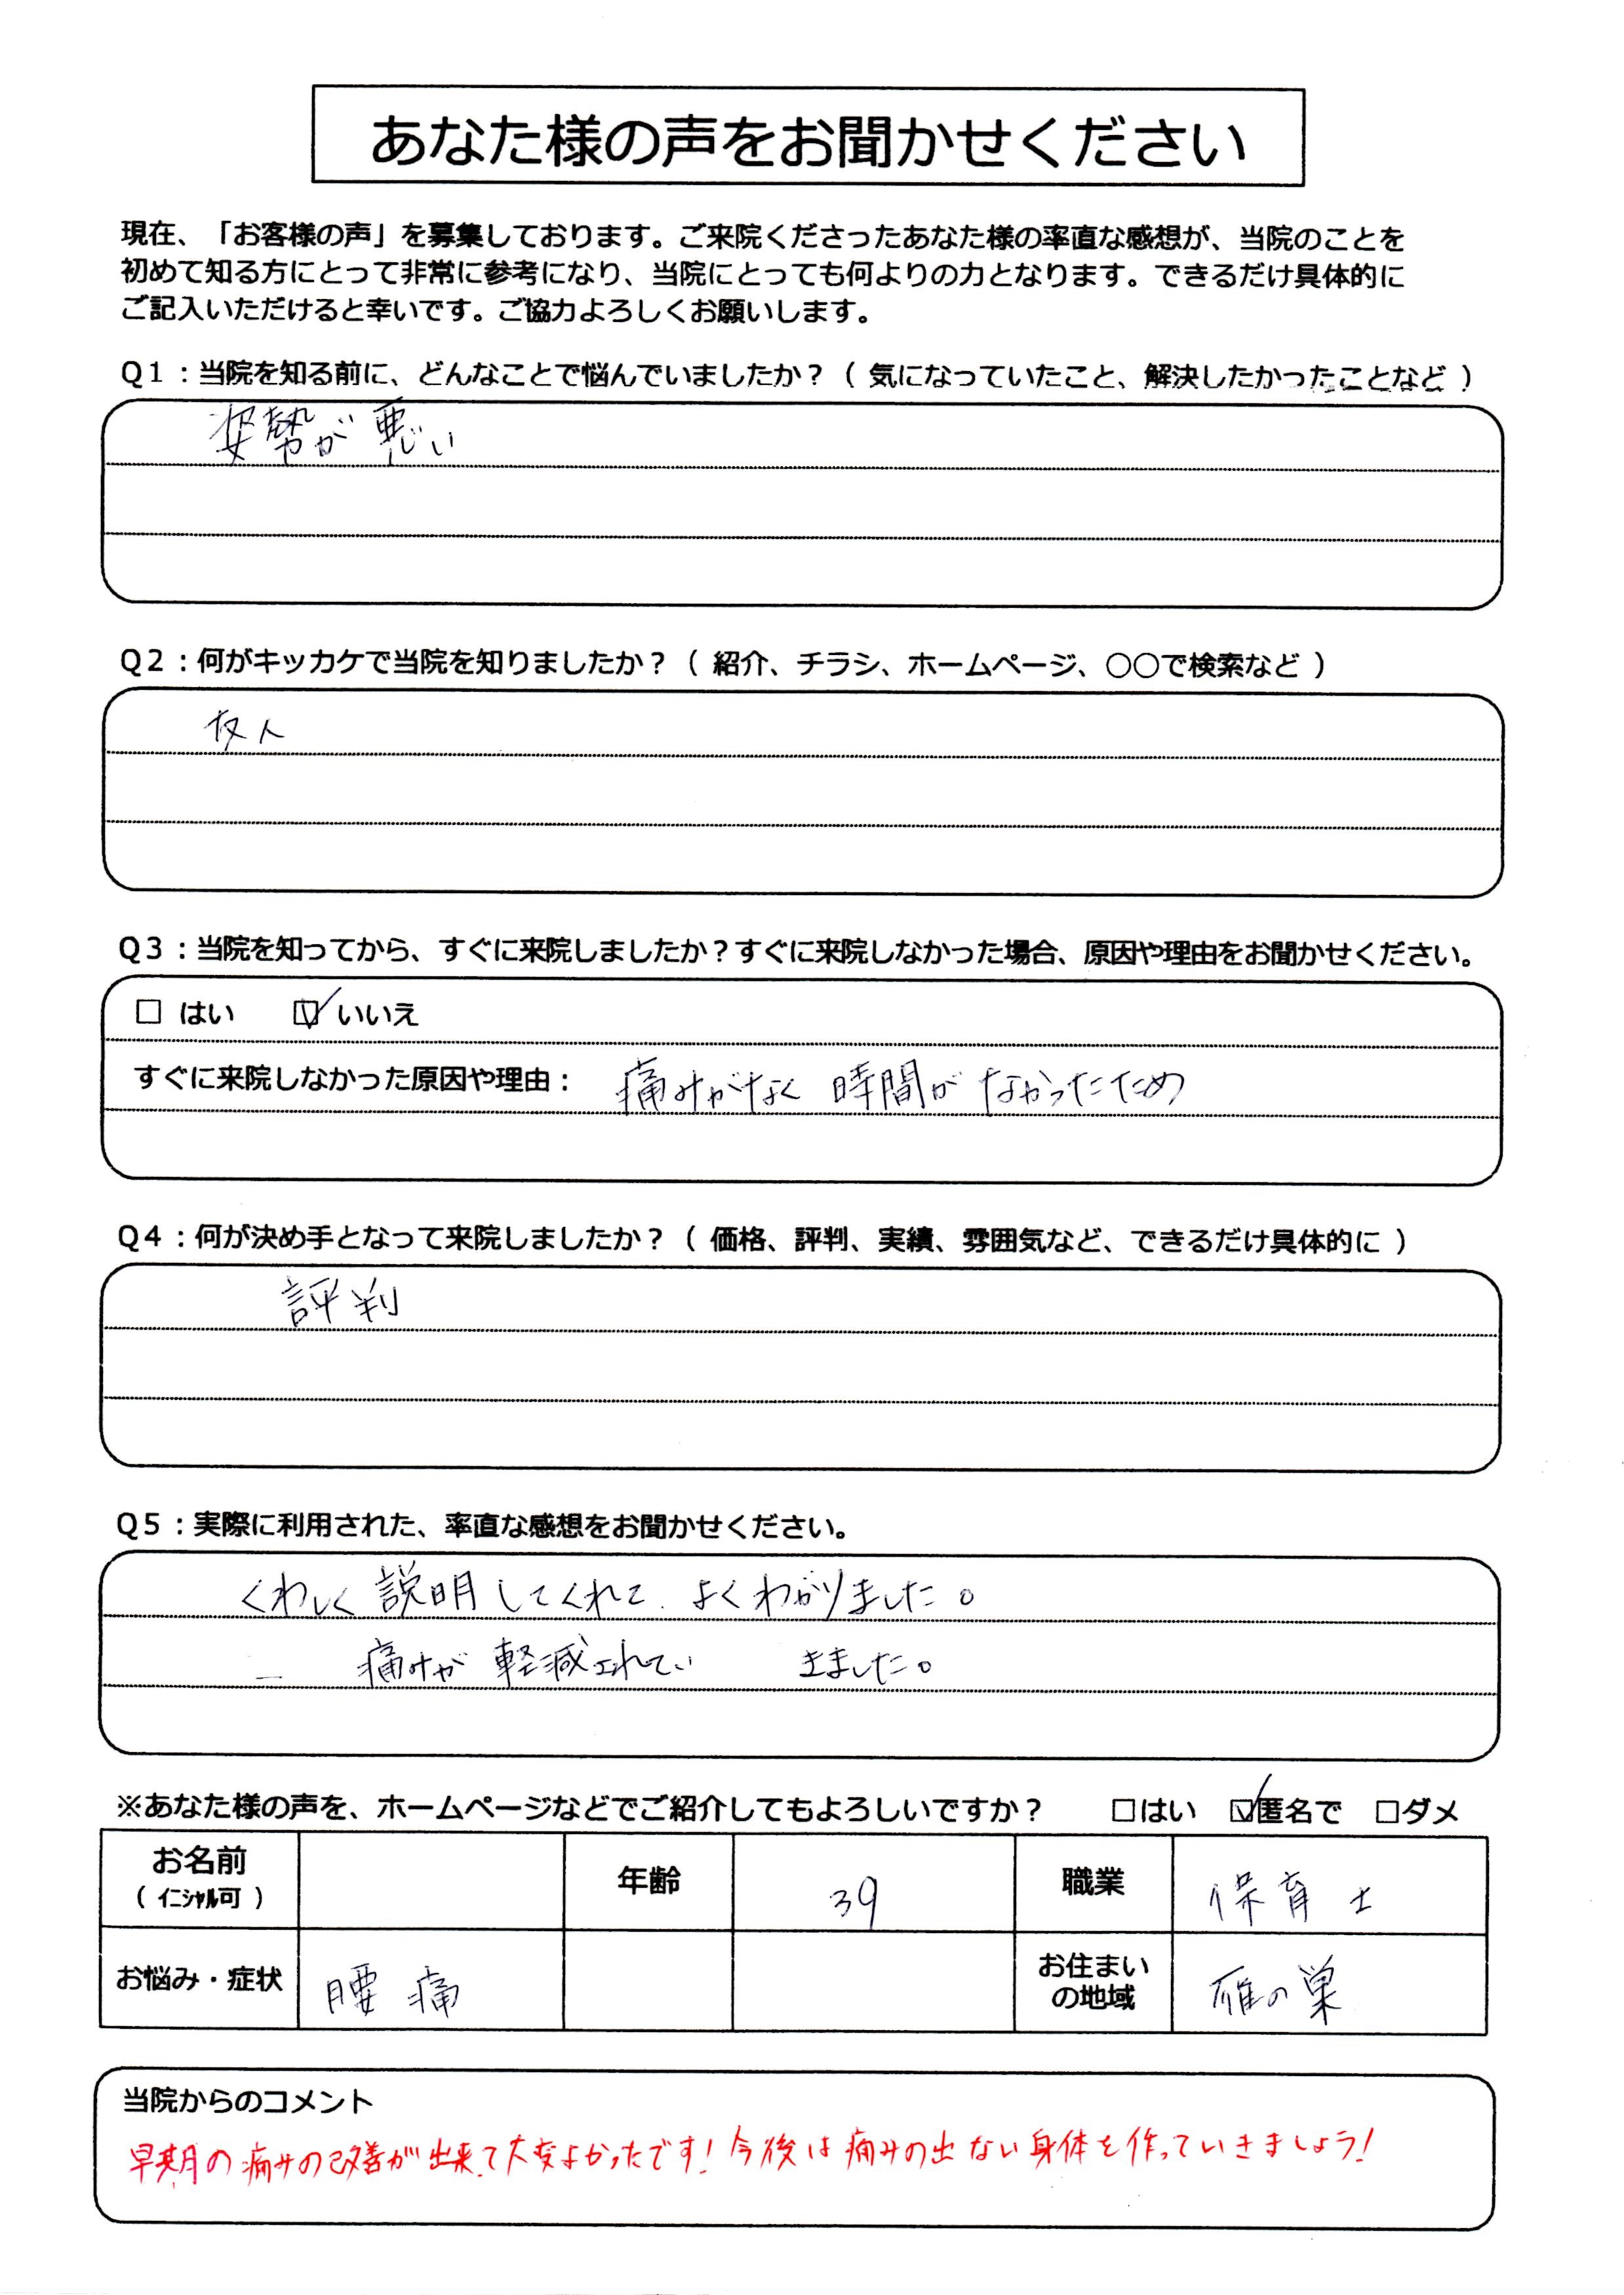 あなた様の声をお聞かせください
現在、「お客様の声」を募集しております。ご来院くださったあなた様の率直な感想が、当院のことを
初めて知る方にとって非常に参考になり、当院にとっても何よりの力となります。できるだけ具体的に
ご記入いただけると幸いです。ご協力よろしくお願いします。
Q1：当院を知る前に、どんなことで悩んでいましたか？（ 気になっていたこと、解決したかったことなど ）
姿勢が悪い
Q2：何がキッカケで当院を知りましたか？（ 紹介、チラシ、ホームページ、○○で検索など ）
友人
Q3：当院を知ってから、すぐに来院しましたか？すぐに来院しなかった場合、原因や理由をお聞かせください。
□ はい ☑ いいえ
すぐに来院しなかった原因や理由： 痛みがなく 時間がなかったため
Q4：何が決め手となって来院しましたか？（ 価格、評判、実績、雰囲気など、できるだけ具体的に ）
評判
Q5：実際に利用された、率直な感想をお聞かせください。
くわしく説明してくれて、よくわかりました。
痛みが軽減されてい きました。
※あなた様の声を、ホームページなどでご紹介してもよろしいですか？ □はい ☑匿名で □ダメ
お名前 年齢 39 職業 保育士
（ イニシャル可 ）
お悩み・症状 腰痛 お住まいの地域 雁の巣
当院からのコメント
早期の痛みの改善が出来て大変よかったです！今後は痛みの出ない身体を作っていきましょう！